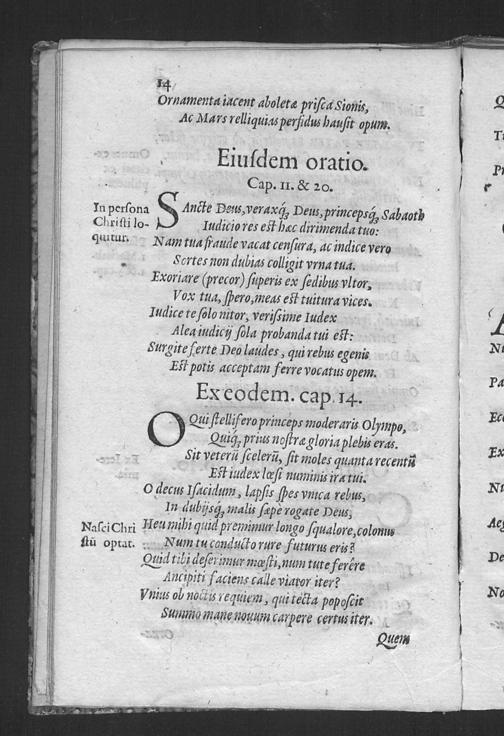 14
Ornamenta iacent aboletæ priſca Sionis,
Ac Mars relliquias perfidus hauſit opum.
Eiuſdem oratio.
Cap. 11. & 20.
In perſona
Chriſti lo-
quitur.
SAncte Deus, veraxq́₃ Deus, princepsq́₃ Sabaoth
Iudicio res eſt hæc dirimenda tuo:
Nam tua fraude vacat cenſura, ac indice vero
Sortes non dubias colligit vrna tua.
Exoriare (precor) ſuperis ex ſedibus vltor,
Vox tua, ſpero, meas eſt tuitura vices.
Iudice te ſolo nitor, veriſſime Iudex
Alea iudicij ſola probanda tui eſt:
Surgite ferte Deo laudes, qui rebus egenis
Eſt potis acceptam ferre vocatus opem.
Ex eodem. cap. 14.
O Qui ſtellifero princeps moderaris Olympo,
Quiq́₃ prius noſtræ gloria plebis eras.
Sit veterū ſcelerū, ſit moles quanta recentū
Eſt iudex lœſi numinis ira tui.
O decus Iſacidum, lapſis ſpes vnica rebus,
In dubijsq́₃ malis ſæpe rogate Deus,
Naſci Chri
ſtū optat.
Heu mihi quid premimur longo ſqualore, colonus
Num tu conducto rure futurus eris?
Quid tibi deſerimur mœſti, num tute ferêre
Ancipiti faciens calle viator iter?
Vnius ob noctis requiem, qui tecta popoſcit
Summo mane nouum carpere certus iter.
Quem